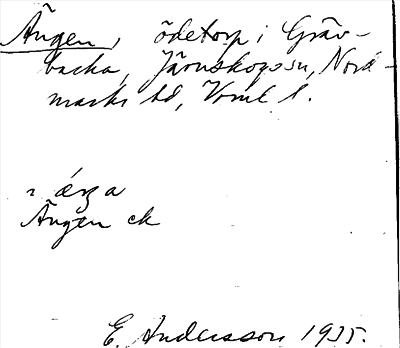 Ängen, ödetorp i Gräv-
backa, Järnskogs sn, Nord-
marks hd, Vrml l.
ä̀rga
Ängen ek
E. Andersson 1935.